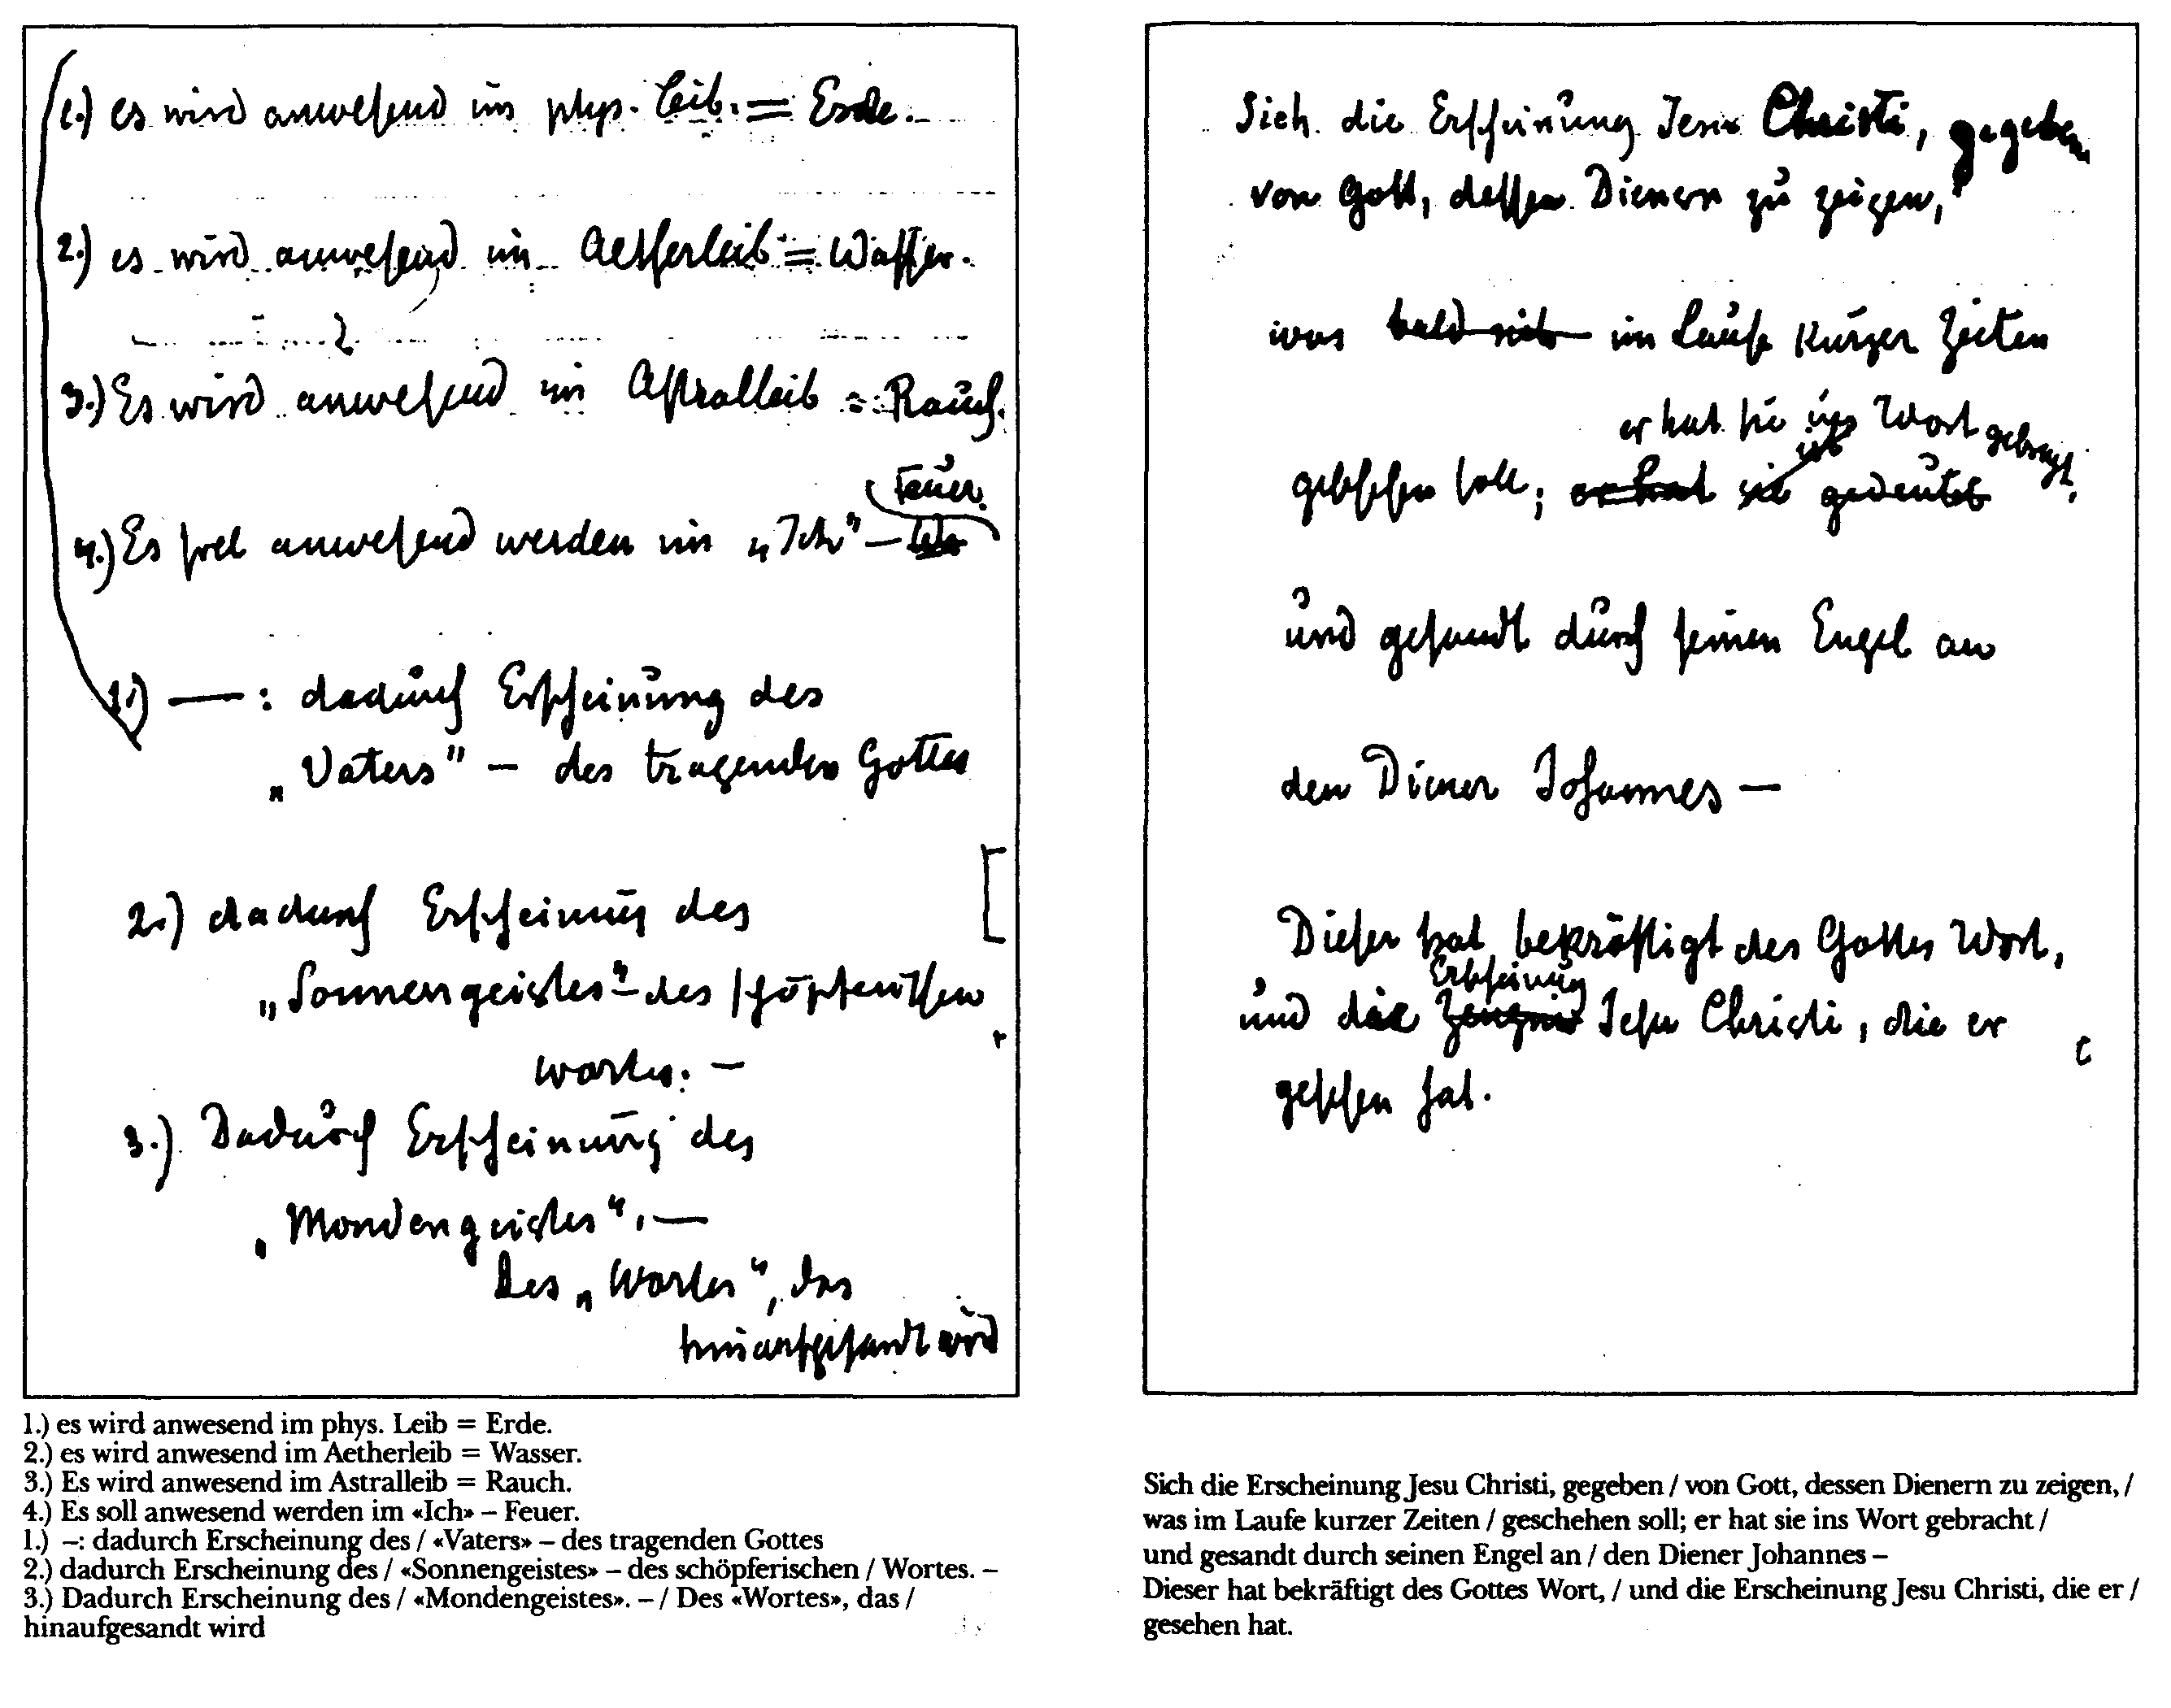 1.) es wird anwesend im phys. Leib. = Erde.
2.) es wird anwesend im Aetherleib = Wasser.
3.) Es wird anwesend im Astralleib = Rauch.
Feuer.
4.) Es soll anwesend werden im „Ich" –
1.) —: dadurch Erscheinung des
„Vaters" – des tragenden Gottes
2.) dadurch Erscheinung des
„Sonnengeistes" – des schöpferischen
Wortes. –
3.) Dadurch Erscheinung des
„Mondengeistes". —
Des „Wortes", das
hinaufgesandt wird
1.) es wird anwesend im phys. Leib = Erde.
2.) es wird anwesend im Aetherleib = Wasser.
3.) Es wird anwesend im Astralleib = Rauch.
4.) Es soll anwesend werden im «Ich» – Feuer.
1.) –: dadurch Erscheinung des / «Vaters» – des tragenden Gottes
2.) dadurch Erscheinung des / «Sonnengeistes» – des schöpferischen / Wortes. –
3.) Dadurch Erscheinung des / «Mondengeistes». – / Des «Wortes», das /
hinaufgesandt wird
Sich die Erscheinung Jesu Christi, gegeben
von Gott, dessen Dienern zu zeigen,
was bald sich im Laufe kurzer Zeiten
er hat sie ins Wort gebracht
geschehen soll; er hat sie gedeutet
und gesandt durch seinen Engel an
den Diener Johannes —
Dieser hat bekräftigt des Gottes Wort,
Erscheinung
und die Zeugnis Jesu Christi, die er
gesehen hat.
Sich die Erscheinung Jesu Christi, gegeben / von Gott, dessen Dienern zu zeigen, /
was im Laufe kurzer Zeiten / geschehen soll; er hat sie ins Wort gebracht /
und gesandt durch seinen Engel an / den Diener Johannes –
Dieser hat bekräftigt des Gottes Wort, / und die Erscheinung Jesu Christi, die er /
gesehen hat.